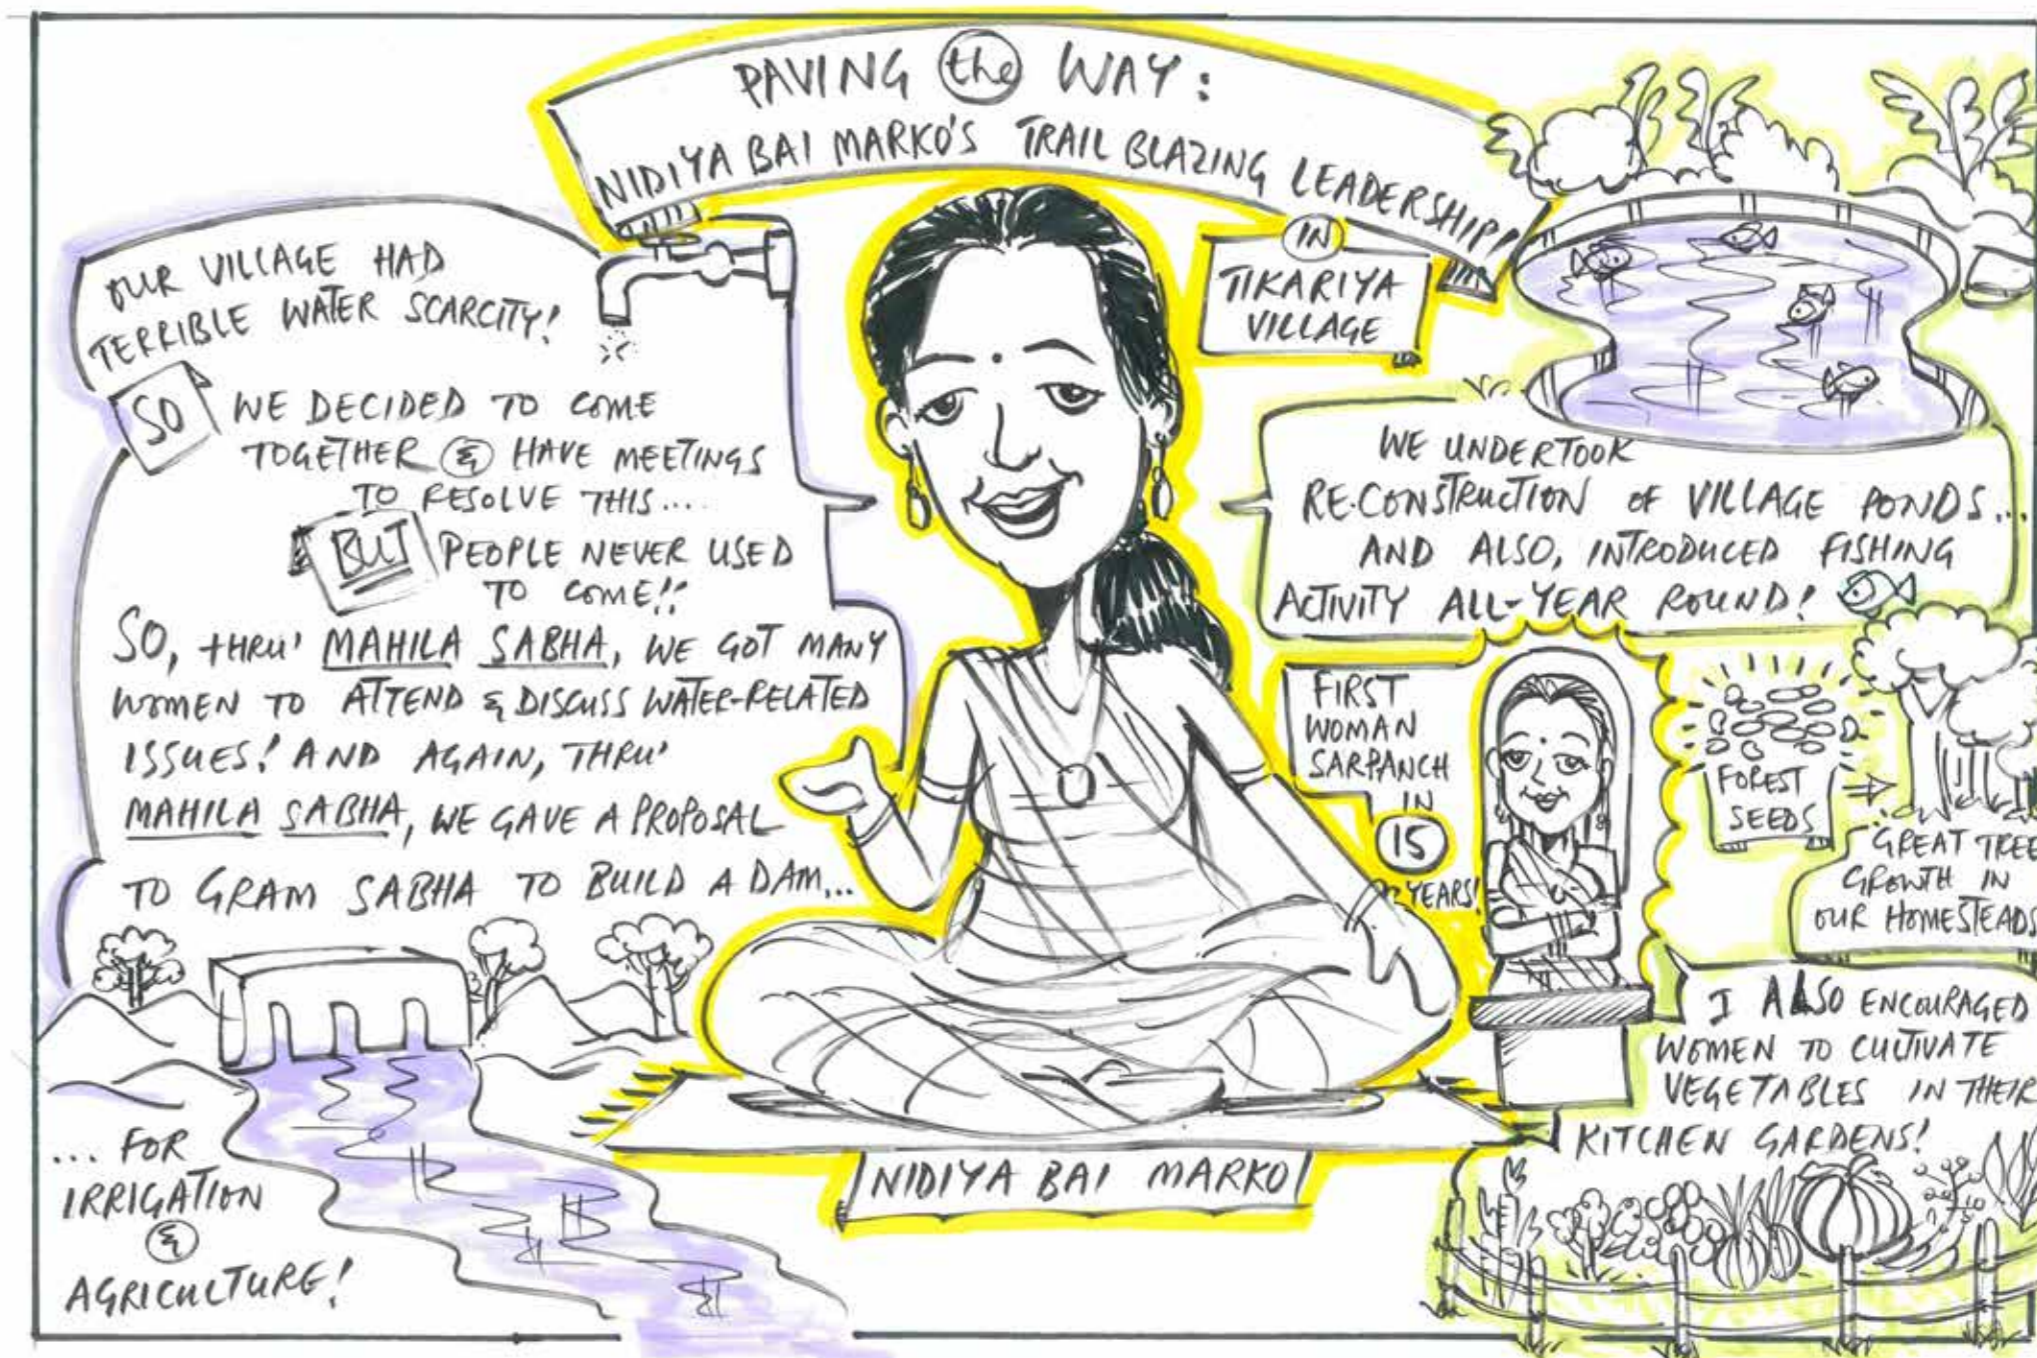 PAVING the WAY:
NIDIYA BAI MARKO'S TRAIL BLAZING LEADERSHIP!
IN
TIKARIYA
VILLAGE
OUR VILLAGE HAD
TERRIBLE WATER SCARCITY!
SO WE DECIDED TO COME
TOGETHER & HAVE MEETINGS
TO RESOLVE THIS....
BUT PEOPLE NEVER USED
TO COME!!
SO, THRU' MAHILA SABHA, WE GOT MANY
WOMEN TO ATTEND & DISCUSS WATER-RELATED
ISSUES! AND AGAIN, THRU'
MAHILA SABHA, WE GAVE A PROPOSAL
TO GRAM SABHA TO BUILD A DAM...
... FOR
IRRIGATION
&
AGRICULTURE!
NIDIYA BAI MARKO
WE UNDERTOOK
RE-CONSTRUCTION OF VILLAGE PONDS...
AND ALSO, INTRODUCED FISHING
ACTIVITY ALL-YEAR ROUND!
FIRST
WOMAN
SARPANCH
IN
15
YEARS!
FOREST
SEEDS
GREAT TREE
GROWTH IN
OUR HOMESTEADS
I ALSO ENCOURAGED
WOMEN TO CULTIVATE
VEGETABLES IN THEIR
KITCHEN GARDENS!